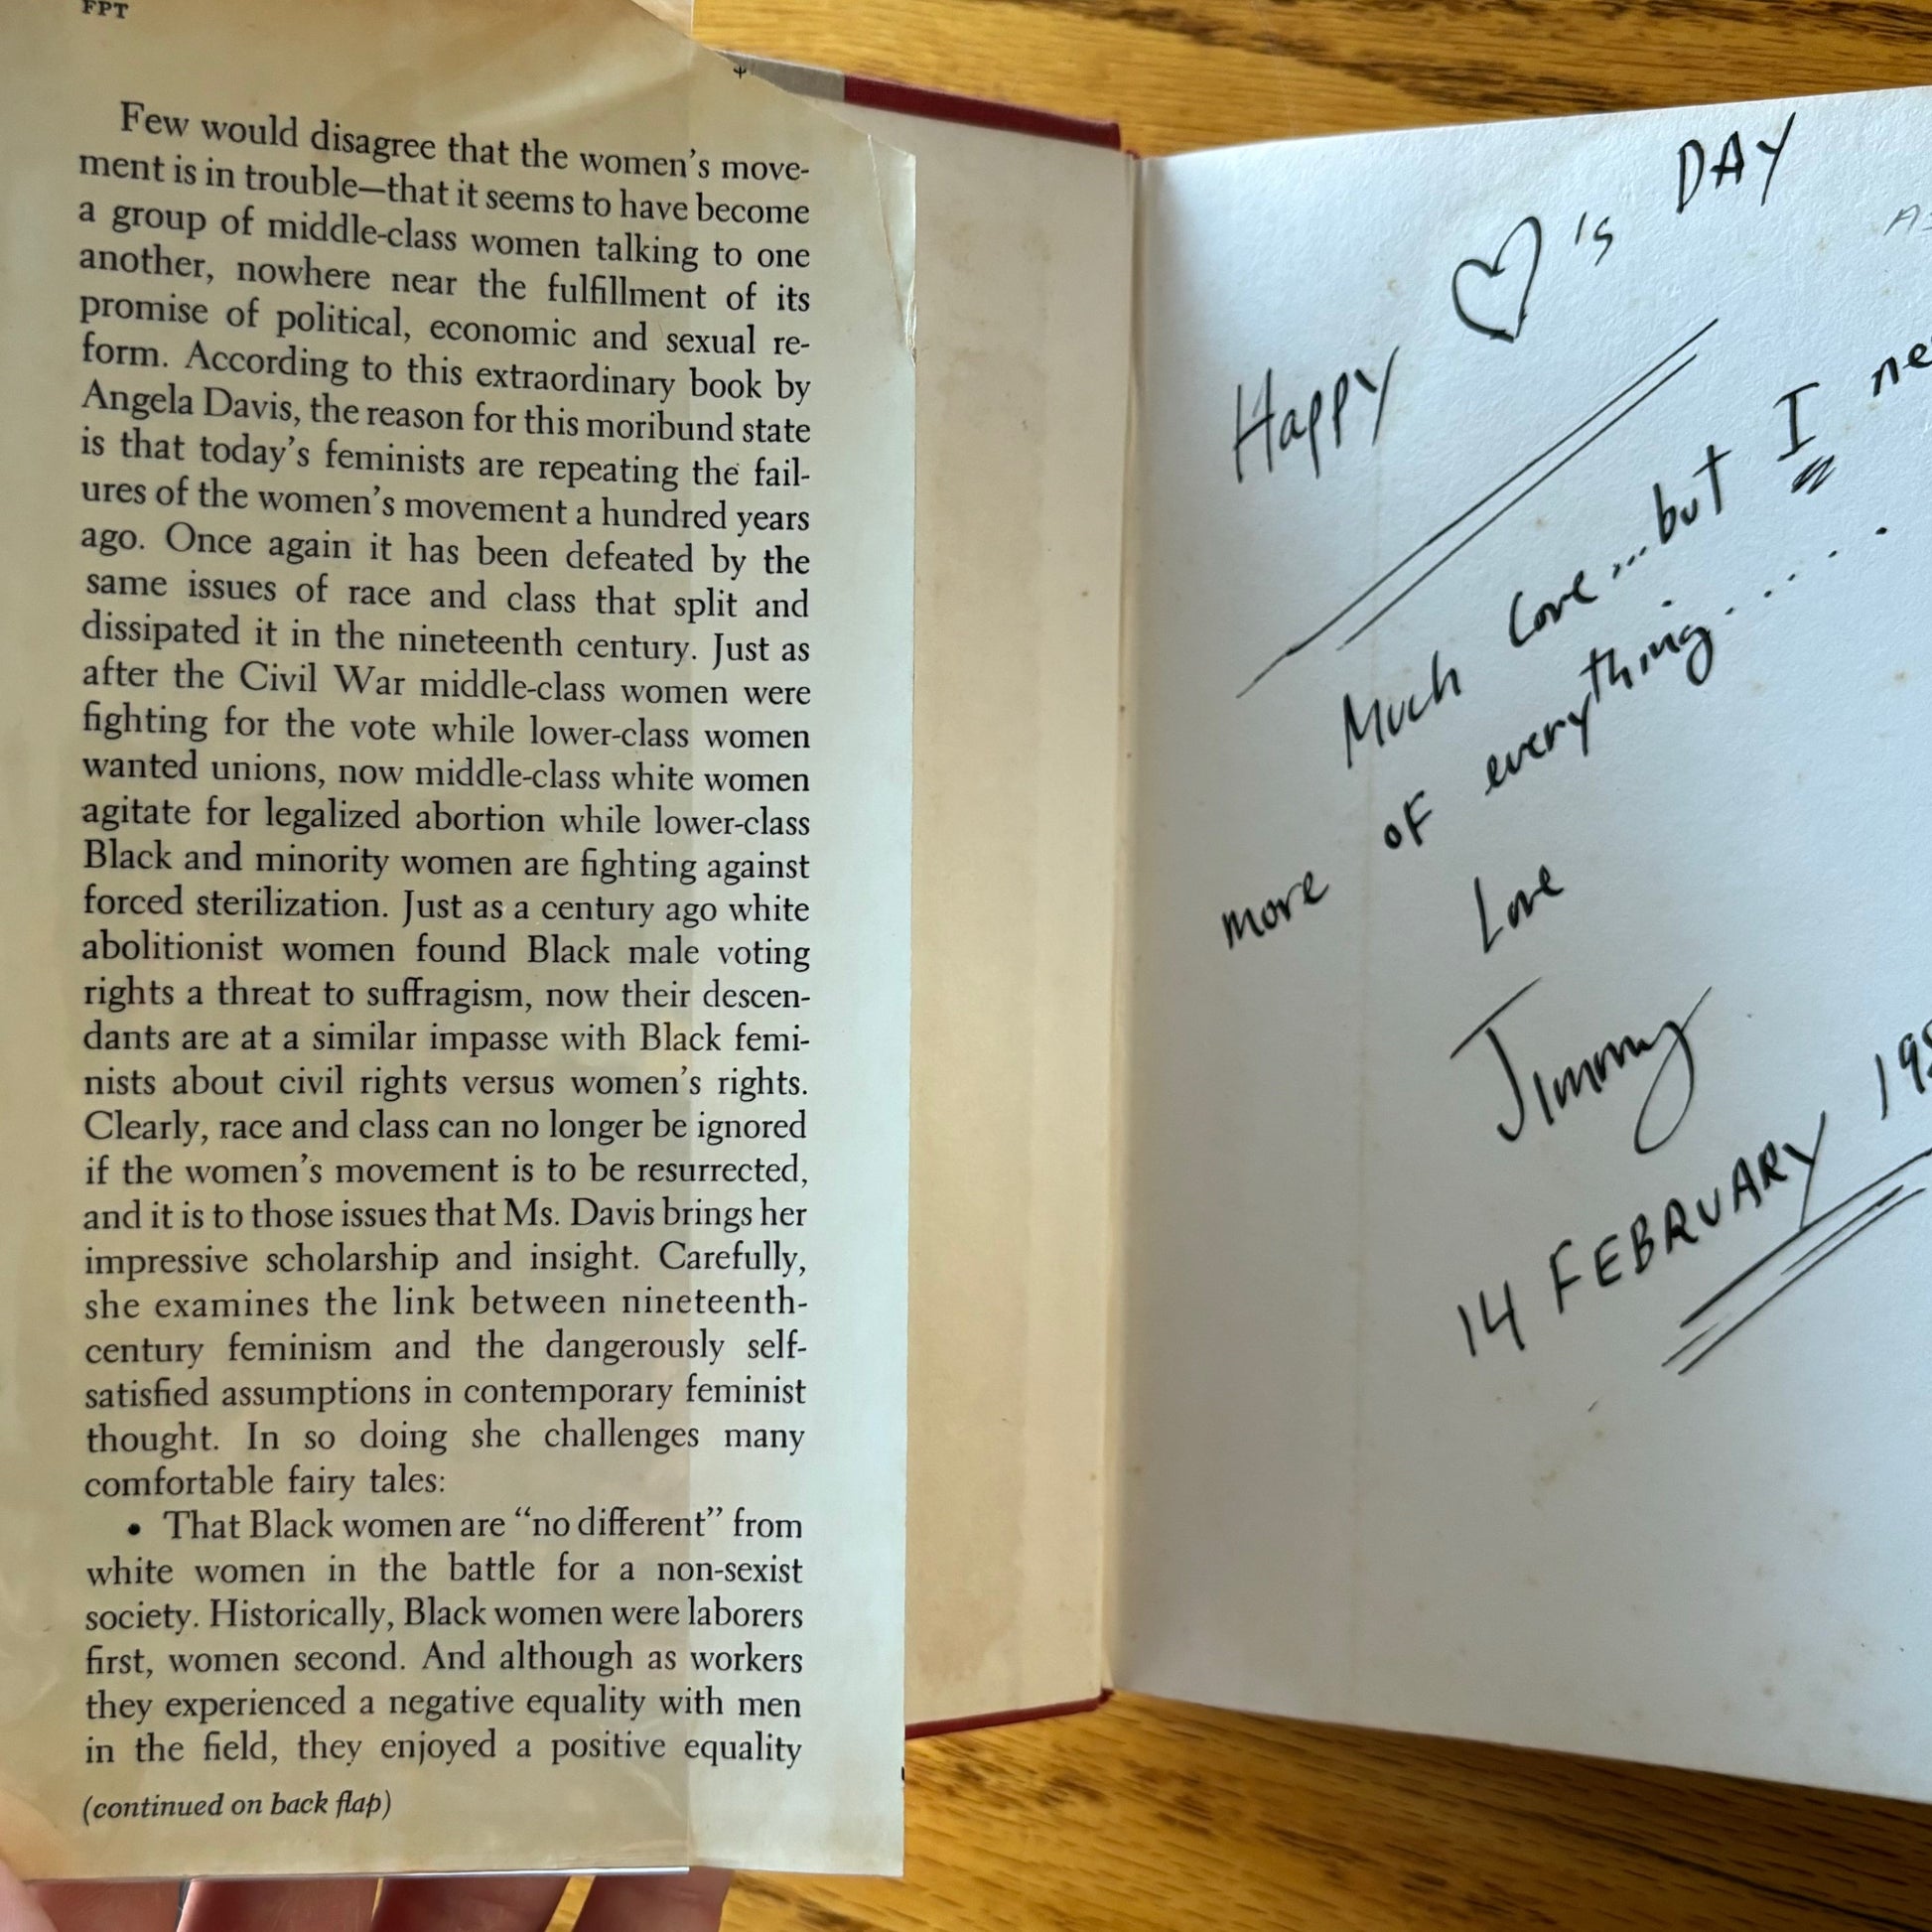 FPT
Few would disagree that the women's move-
ment is in trouble—that it seems to have become
a group of middle-class women talking to one
another, nowhere near the fulfillment of its
promise of political, economic and sexual re-
form. According to this extraordinary book by
Angela Davis, the reason for this moribund state
is that today's feminists are repeating the fail-
ures of the women's movement a hundred years
ago. Once again it has been defeated by the
same issues of race and class that split and
dissipated it in the nineteenth century. Just as
after the Civil War middle-class women were
fighting for the vote while lower-class women
wanted unions, now middle-class white women
agitate for legalized abortion while lower-class
Black and minority women are fighting against
forced sterilization. Just as a century ago white
abolitionist women found Black male voting
rights a threat to suffragism, now their descen-
dants are at a similar impasse with Black femi-
nists about civil rights versus women's rights.
Clearly, race and class can no longer be ignored
if the women's movement is to be resurrected,
and it is to those issues that Ms. Davis brings her
impressive scholarship and insight. Carefully,
she examines the link between nineteenth-
century feminism and the dangerously self-
satisfied assumptions in contemporary feminist
thought. In so doing she challenges many
comfortable fairy tales:
• That Black women are “no different” from
white women in the battle for a non-sexist
society. Historically, Black women were laborers
first, women second. And although as workers
they experienced a negative equality with men
in the field, they enjoyed a positive equality
(continued on back flap)
Happy ♡'s DAY
Much Love...but I
more of everything......
Love
Jimmy
14 FEBRUARY